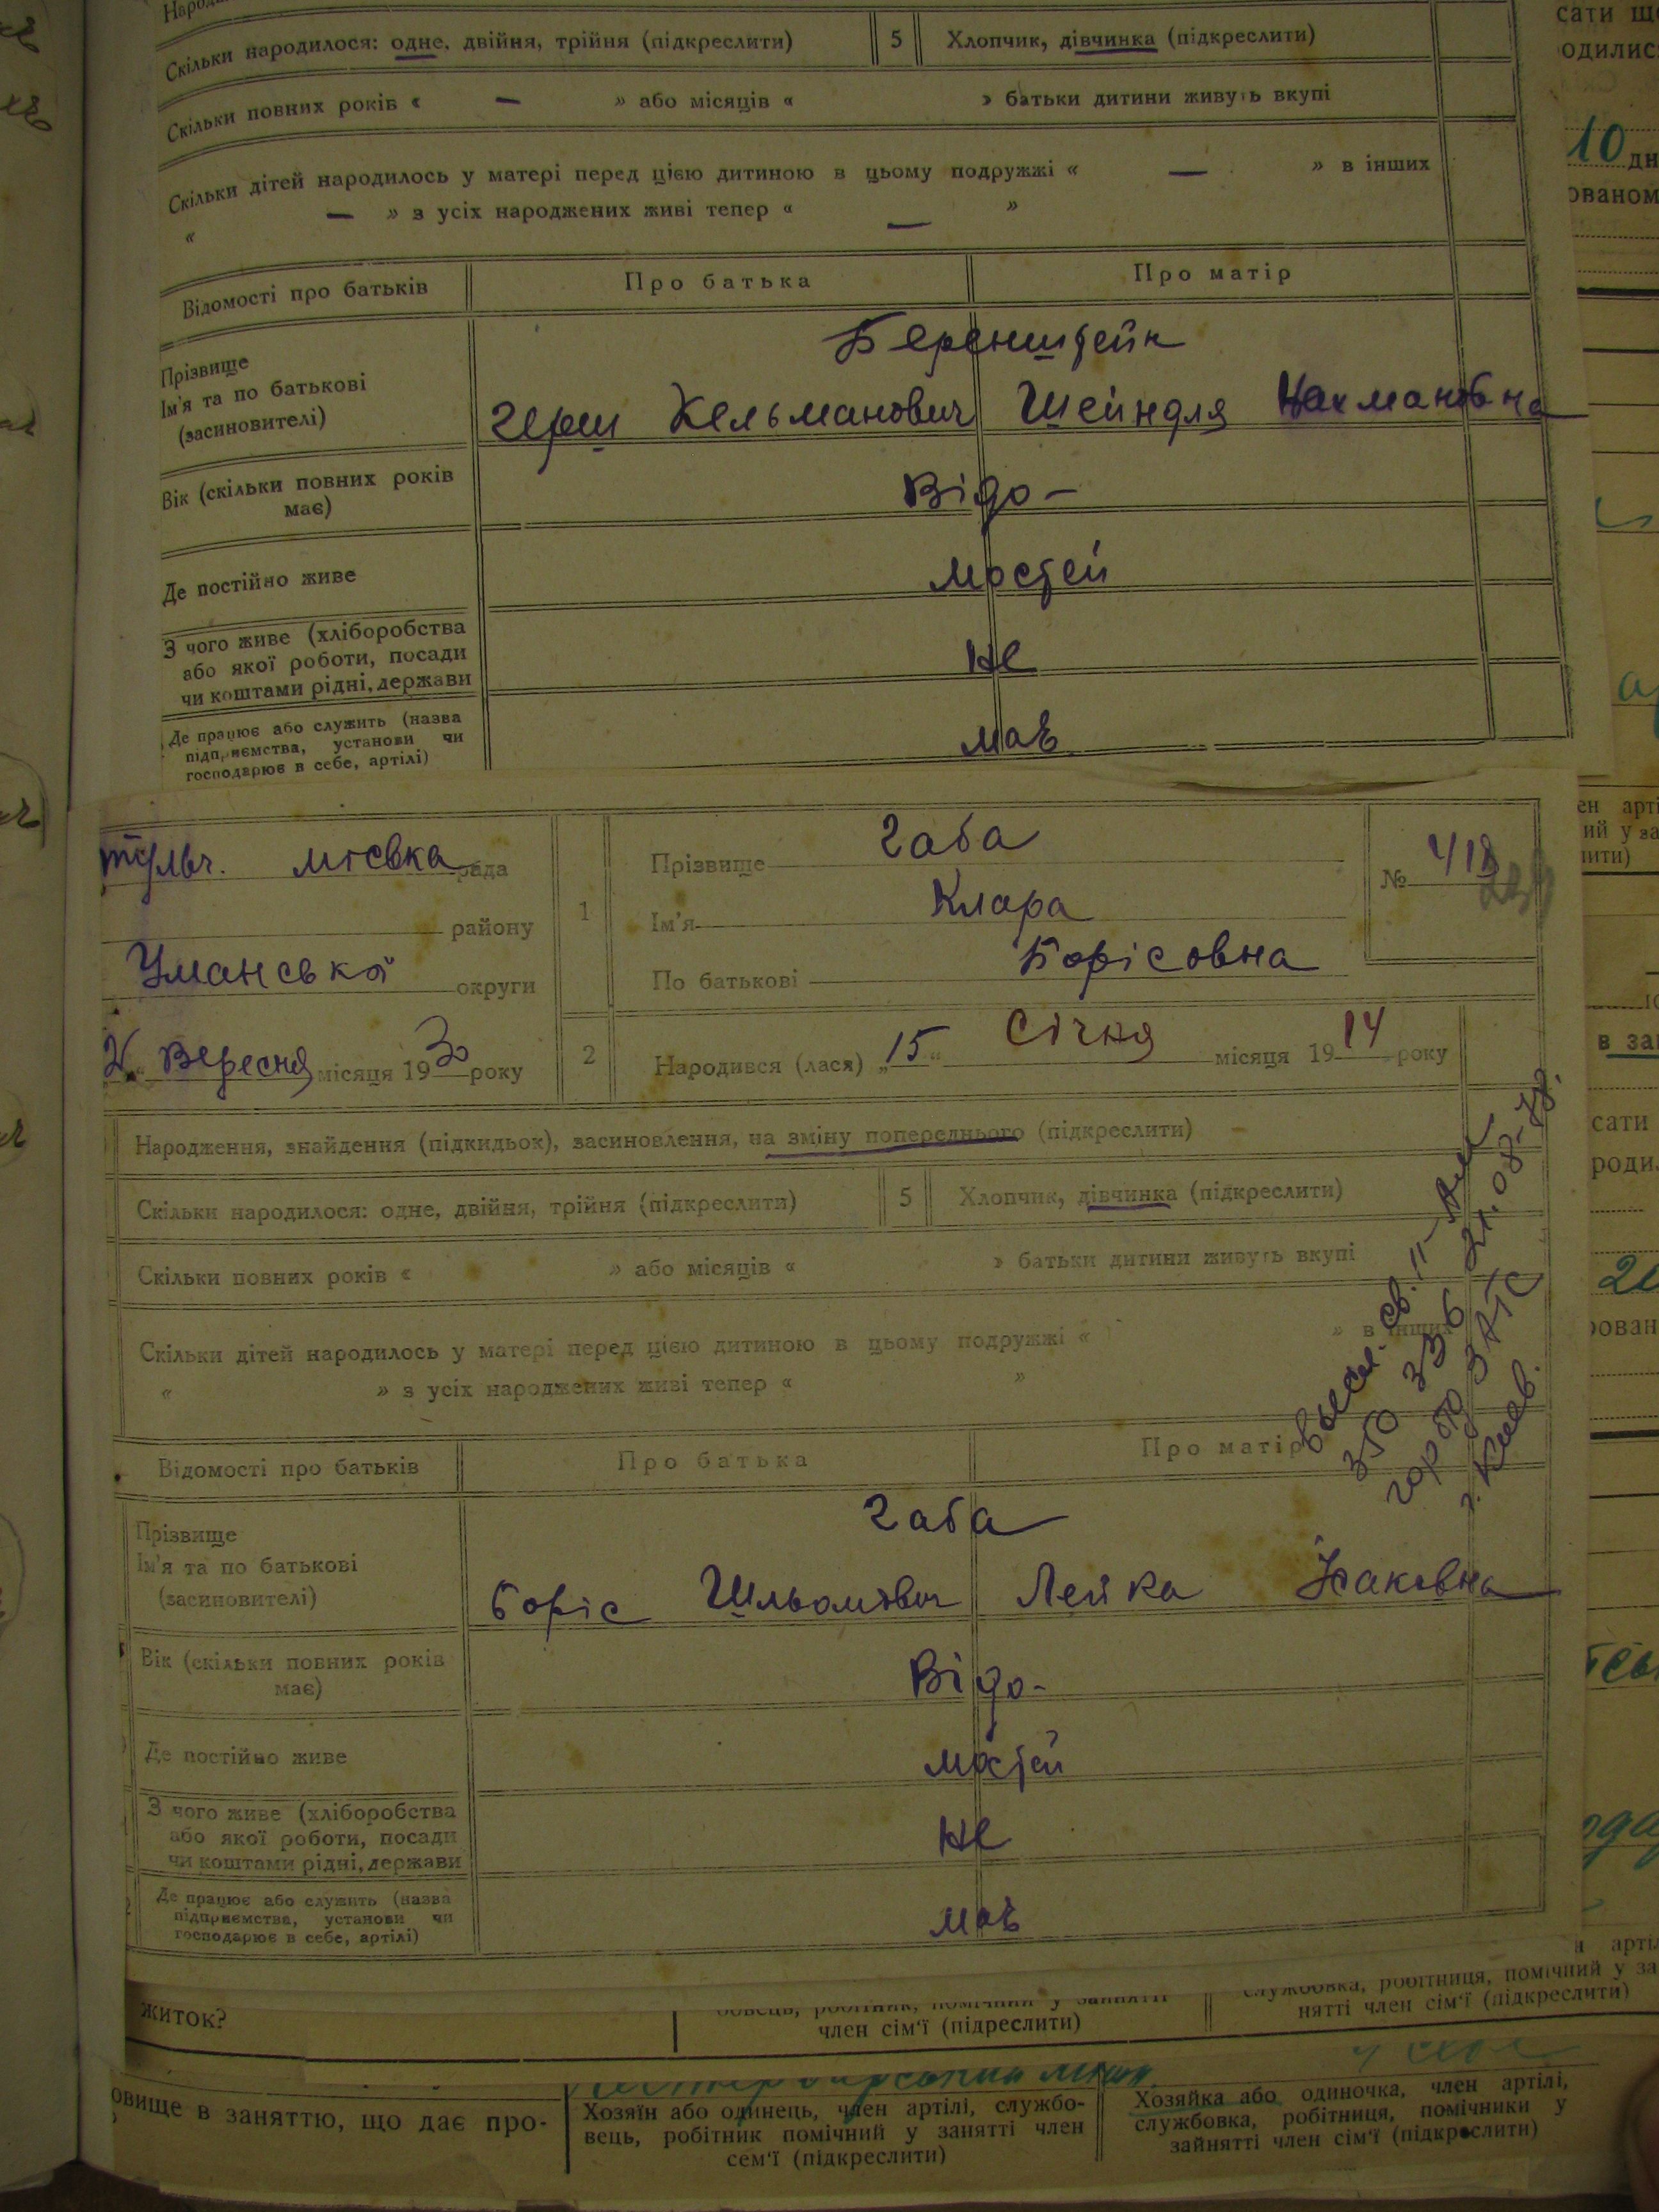 Скільки народилося: одне, двійня, трійня (підкреслити) 5 Хлопчик, дівчинка (підкреслити)
Скільки повних років « — » або місяців « » батьки дитини живуть вкупі
Скільки дітей народилось у матері перед цією дитиною в цьому подружжі « — » в інших
« — » з усіх народжених живі тепер « — »
Відомості про батьків Про батька Про матір
Прізвище
Ім'я та по батькові
(засиновителі)
Беренштейн
Герш Кельманович Шейндля Нахмановна
Вік (скільки повних років
має)
Відо-
Де постійно живе
мостей
З чого живе (хліборобства
або якої роботи, посади
чи коштами рідні, держави
не
Де працює або служить (назва
підприємства, установи чи
господарює в себе, артілі)
має
Тульч. міська рада
району
Уманської округи
Вересня місяця 1930 року
1
Прізвище Габа
Ім'я Клара
По батькові Борісовна
№ 418
2 Народився (лася) „15“ Січня місяця 1914 року
Народження, знайдення (підкидьок), засиновлення, на зміну попереднього (підкреслити)
Скільки народилося: одне, двійня, трійня (підкреслити) 5 Хлопчик, дівчинка (підкреслити)
Скільки повних років « » або місяців « » батьки дитини живуть вкупі
Скільки дітей народилось у матері перед цією дитиною в цьому подружжі « » в інших
« » з усіх народжених живі тепер « »
г. Киев.
Відомості про батьків Про батька Про матір
Прізвище
Ім'я та по батькові
(засиновителі)
Габа
Боріс Шльомович Лейка
Вік (скільки повних років
має)
Відо-
Де постійно живе
мостей
З чого живе (хліборобства
або якої роботи, посади
чи коштами рідні, держави
не
Де працює або служить (назва
підприємства, установи чи
господарює в себе, артілі)
має
житок?
член сім'ї (підреслити)
службовка, робітниця, помічний у за
нятті член сім'ї (підкреслити)
овище в заняттю, що дає про-
Хозяїн або одинець, член артілі, службо-
вець, робітник помічний у занятті член
сем'ї (підкреслити)
Хозяйка або одиночка, член артілі,
службовка, робітниця, помічники у
зайнятті член сім'ї (підкреслити)